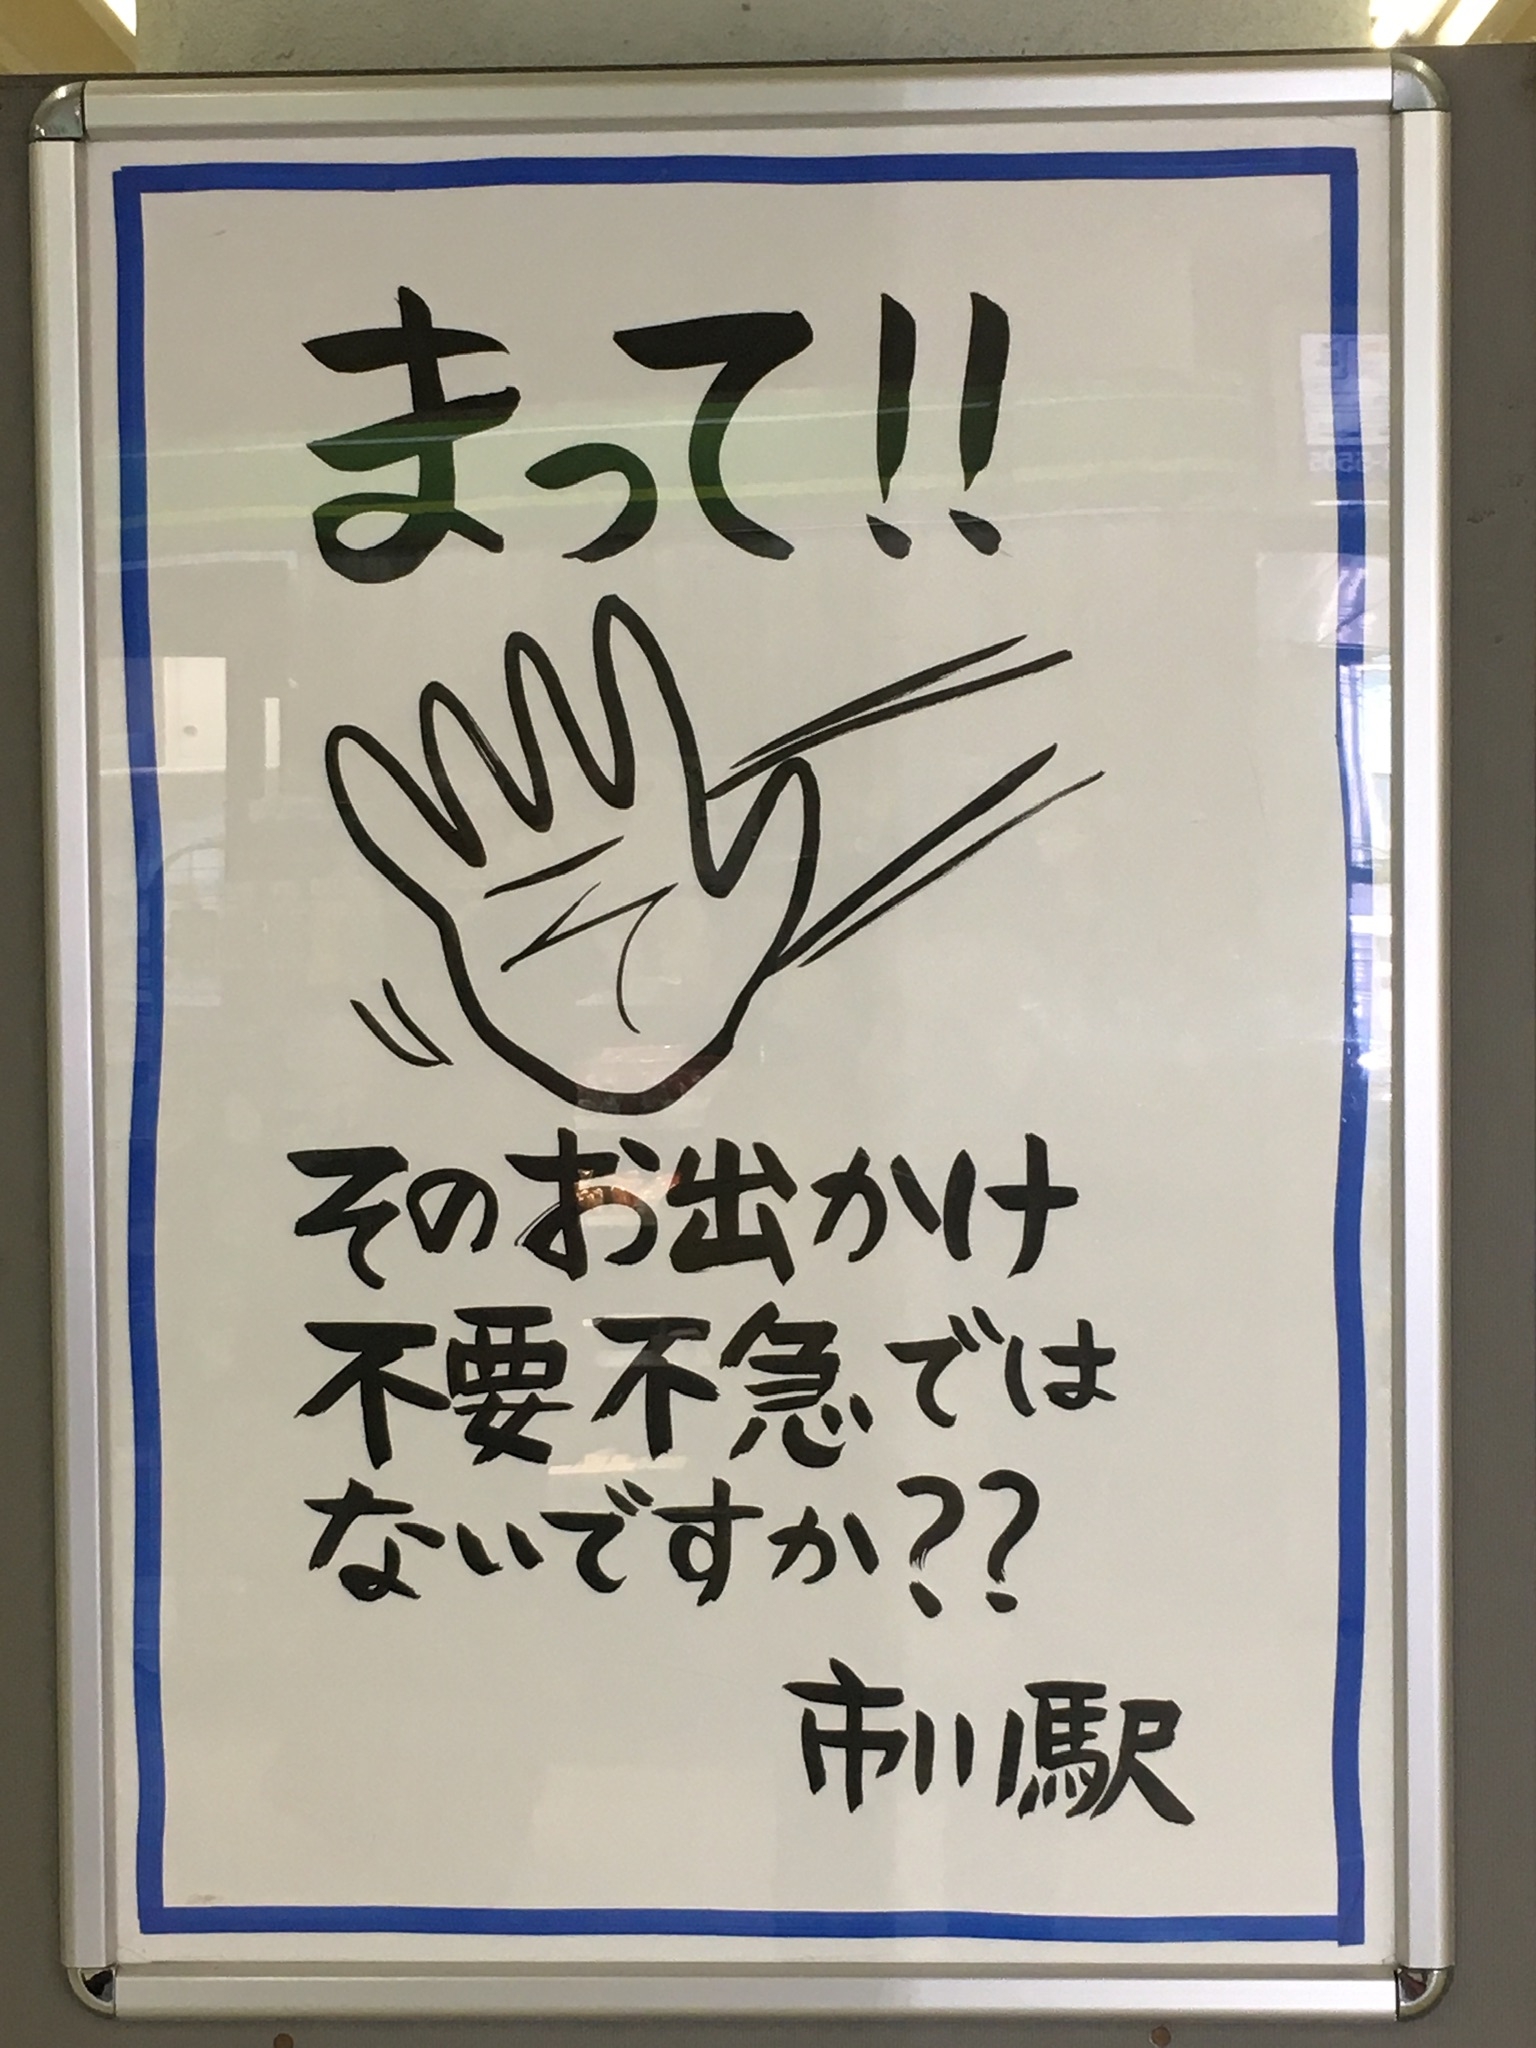 まって!!
そのお出かけ
不要不急では
ないですか??
市川駅